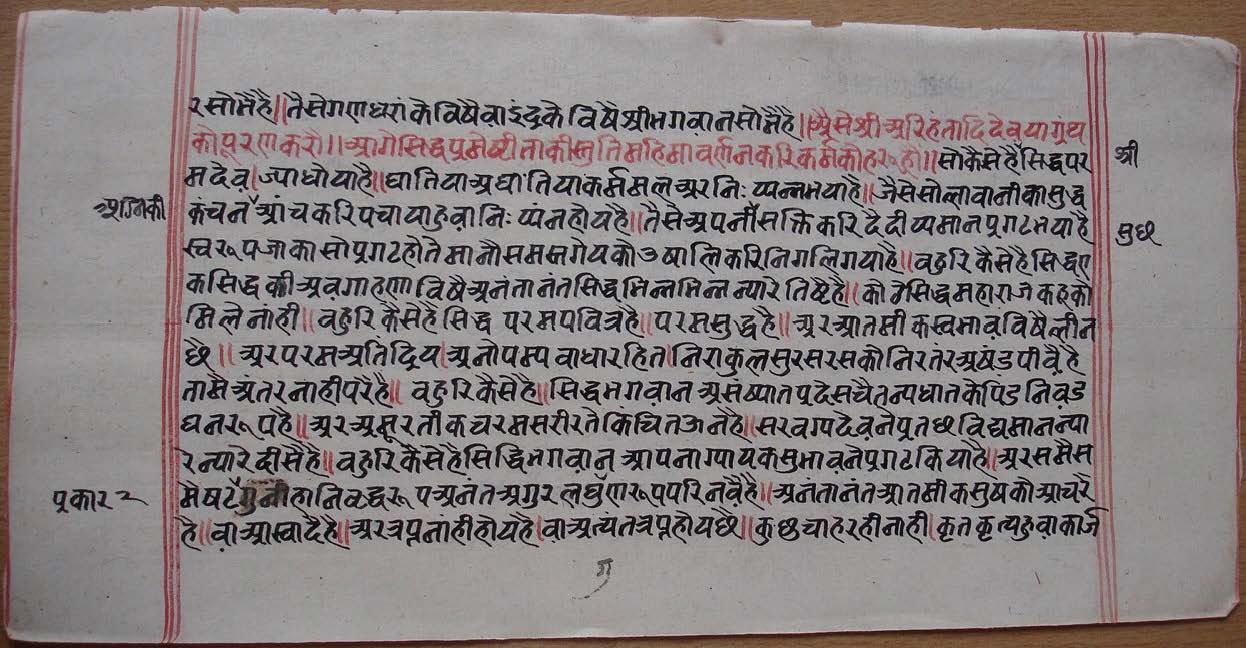 र सोभै है॥ तैसे गणधरां के विषै वा इंद्र के विषै श्री भगवान सोभै है॥ अैसे श्री अरिहंतादि देव या ग्रंथ
को पूरण करौ॥ आगे सिद्ध प्रमेष्टी ताकी स्तुति महिमा वर्णन करि कर्म को हरू हौं॥ सो कैसे है सिद्ध पर
श्री
म देव। ज्या धोया है॥ घातिया अघातिया कर्म मल अर निःप्पन्न भया है॥ जैसे सोला वानी का सुद्ध
अग्नि की
कंचन आंच करि पचाया हुवा निःप्पंन होय है॥ तैसे अपनी सक्ति करि दैदीप्यमान प्रगट भया है
मुछ
स्वरूप जाका सो प्रगट होते मानौ समस्त गेय कौ उषालि करि निगलि गया है॥ बहुरि कैसे है सिद्ध ए
क सिद्ध की अवगाहणा विषै अनंतानंत सिद्ध भिन्न भिन्न न्यारे तिष्टै है॥ कौ ने सिद्ध महाराज कहू को
मिले नाही॥ बहुरि कैसे है सिद्ध परम पवित्र है॥ परम सुद्ध है॥ अर आतमीक स्वभाव विषै लीन
छै॥ अर परम अतिंद्रिय। अनोपम्प वाधा रहित। निराकुल सुरस रस कौ निरतंर अषंड पीवै है
तामै अंतर नाही परै है॥ बहुरि कैसे है॥ सिद्ध भगवान असंष्यात प्रदेस चैतन्य धात के पिंड निवड
घन रूप है॥ अर अमूरतीक चरम सरीर तै किंचित ऊनै है॥ सरवग्य देव नै प्रतछ विद्यमान न्या
रे न्यारे दीसै है॥ बहुरि कैसे है सिद्धि भगवान आपना ग्यायक सुभाव नै प्रगट किया है॥ अर समै स
मै षट गुनी हानि वृद्ध रूप अनंत अगुर लघु रूप परिनवै है॥ अनंतानंत आतमीक सुष कौ आचरै
प्रकार २
है॥ वा आस्वादै है॥ अर त्रप्त नाही होय है। वा अत्यंत त्रप्त होय छै॥ कुछ चाह रही नाही। कृत कृत्य हुवा कार्ज